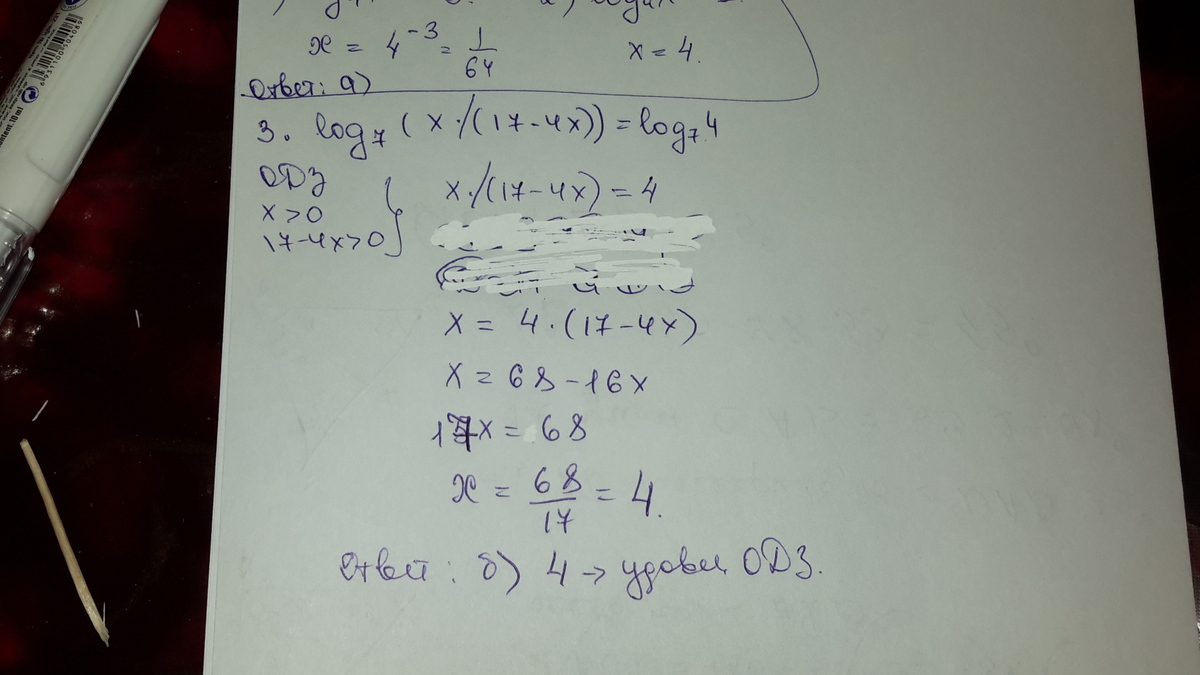 x = 4⁻³ = 1/64   x = 4.
Ответ: а)
3. log₇ ( x /(17-4x)) = log₇ 4
ОДЗ
x > 0
17-4x>0
x /(17-4x) = 4
x = 4 · (17-4x)
x = 68 - 16x
17x = 68
x = 68/17 = 4.
Ответ: б) 4 → удовл. ОДЗ.